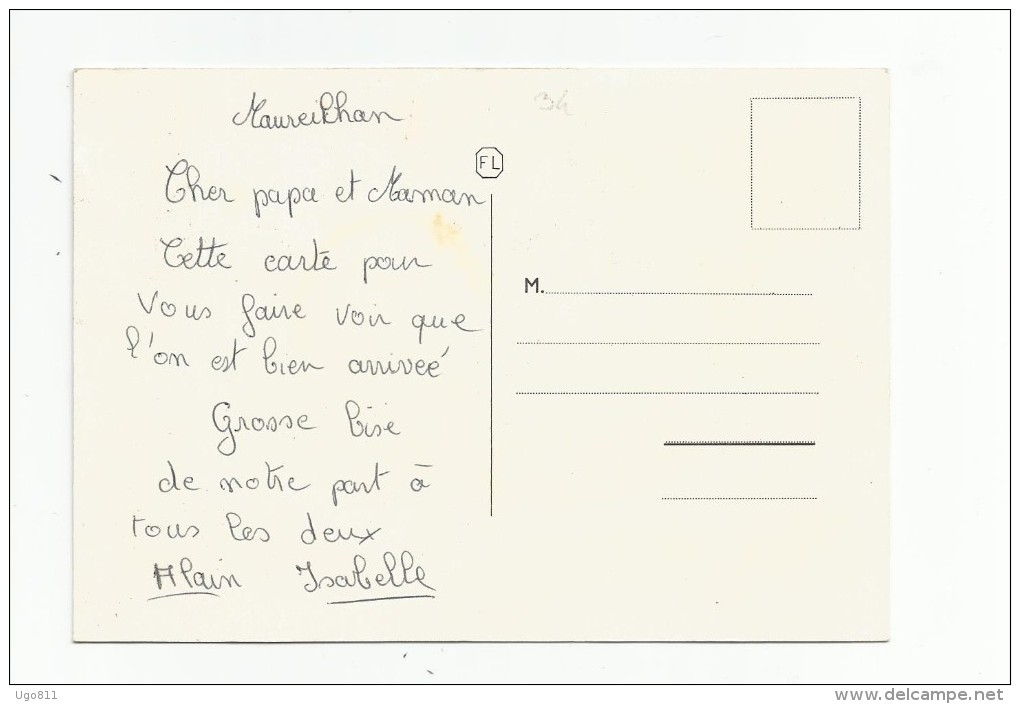 Maureilhan
34
FL
Cher papa et Maman
Cette carte pour
Vous faire voir que
l'on est bien arriveé
Grosse bise
de notre part à
tous les deux
Alain Isabelle
M.
Ugo811
www.delcampe.net